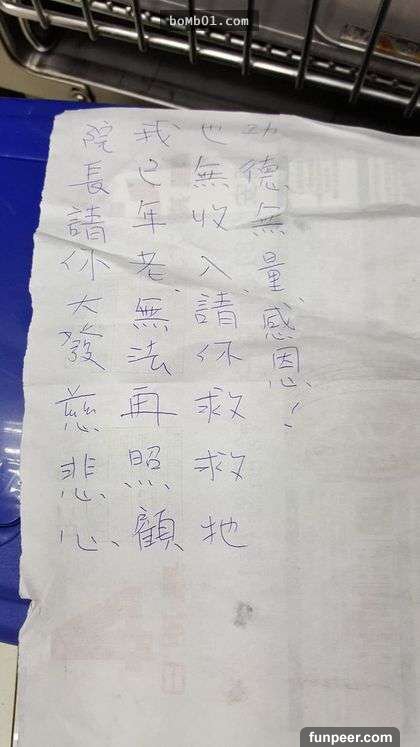 boMb01.com
院長請你大發慈悲心、
我已年老、無法再照顧
也無收入、請你救救牠
功德無量、感恩！
funpeer.com